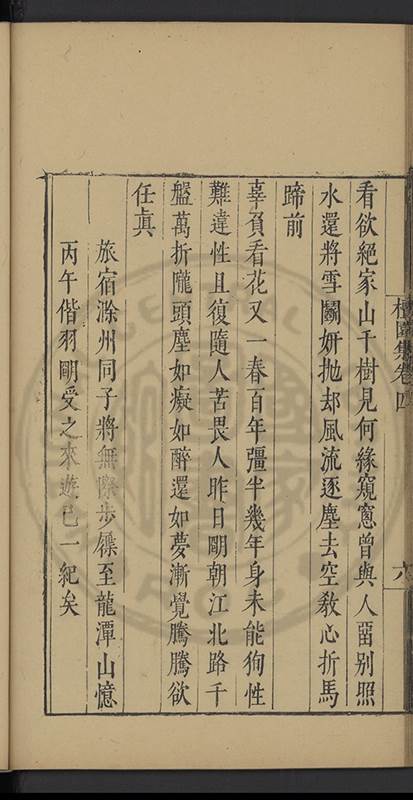 看欲絶家山千樹見何緣窺窻曾與人畱别照
水還將雪鬭妍抛却風流逐塵去空敎心折馬
蹄前
辜負看花又一春百年彊半幾年身未能狥性
難違性且復隨人苦畏人昨日朙朝江北路千
盤萬折隴頭塵如癡如醉還如夢漸覺騰騰欲
任眞
旅宿滁州同子將無際步屧至龍潭山憶
丙午偕羽朙受之來遊已一紀矣
園集卷四
六